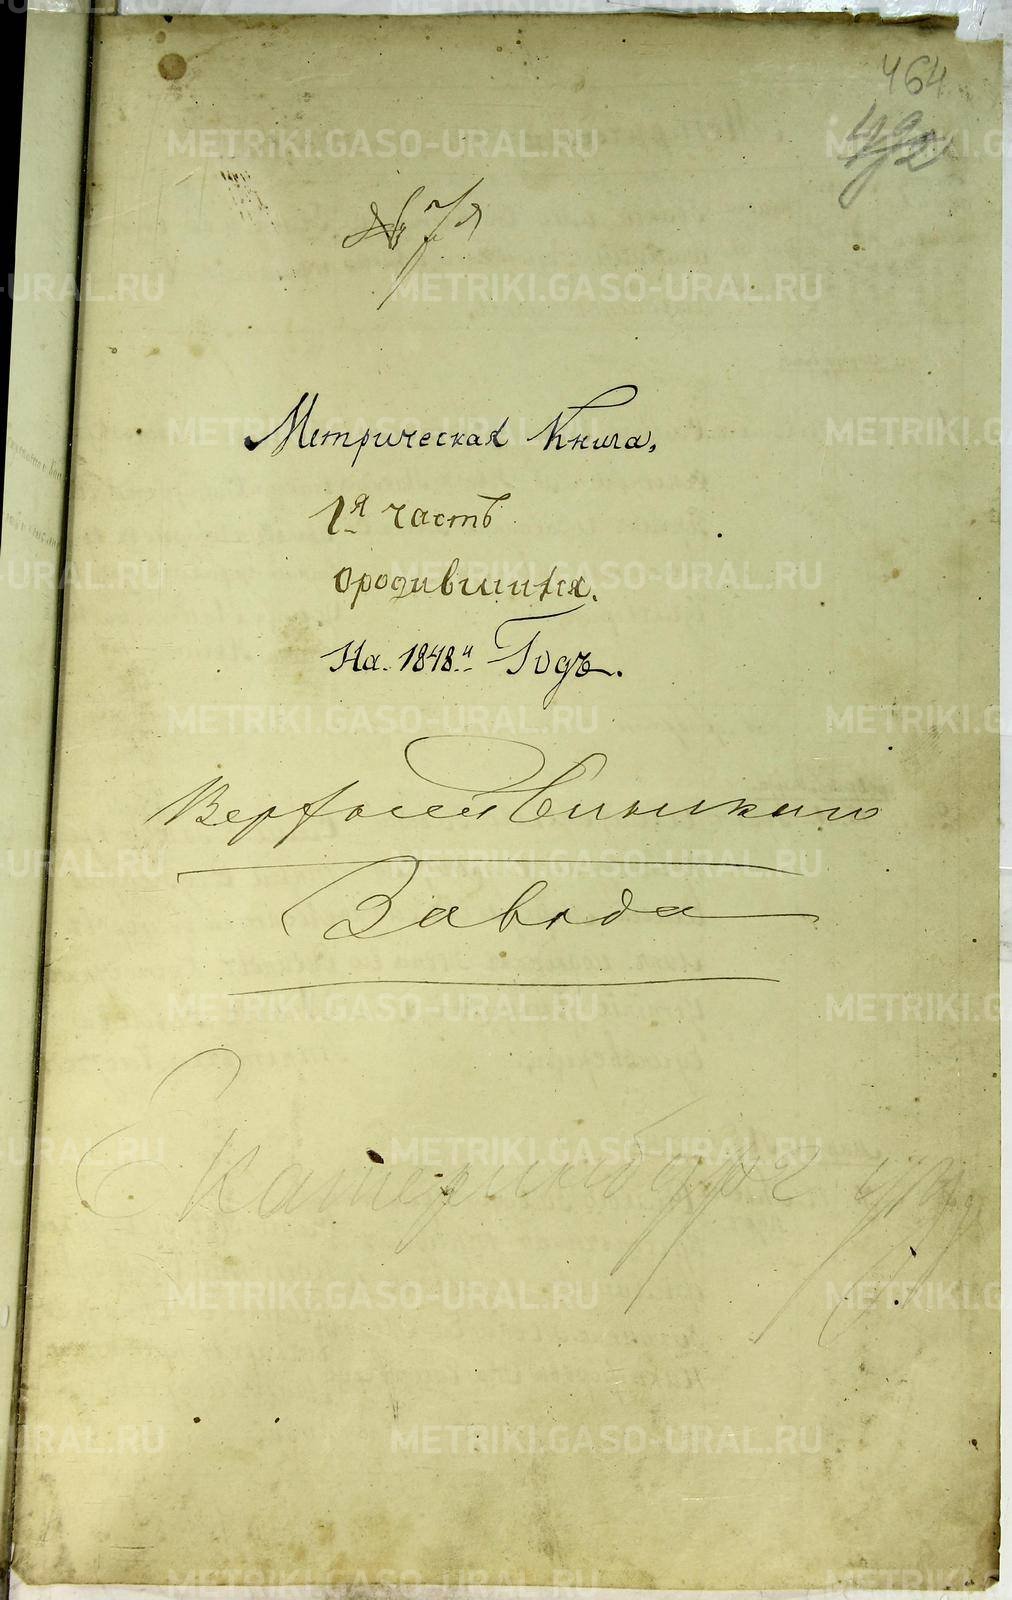 464
492
№ 7й
Метрическая Книга.
1я часть
ородившихся.
На 1848й Годъ.
Верхнейвинскаго
Завода
Екатеринбург уѣзд
METRIKI.GASO-URAL.RU